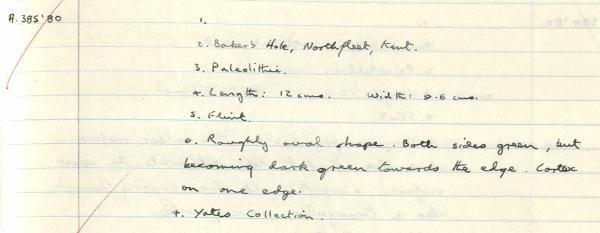 A.385'80
1.
2. Baker's Hole, Northfleet, Kent.
3. Paleolithic.
4. Length: 12 cms. Width: 8.6 cms.
5. Flint.
6. Roughly oval shape. Both sides green, but
becoming dark green towards the edge. Cortex
on one edge.
7. Yates Collection.